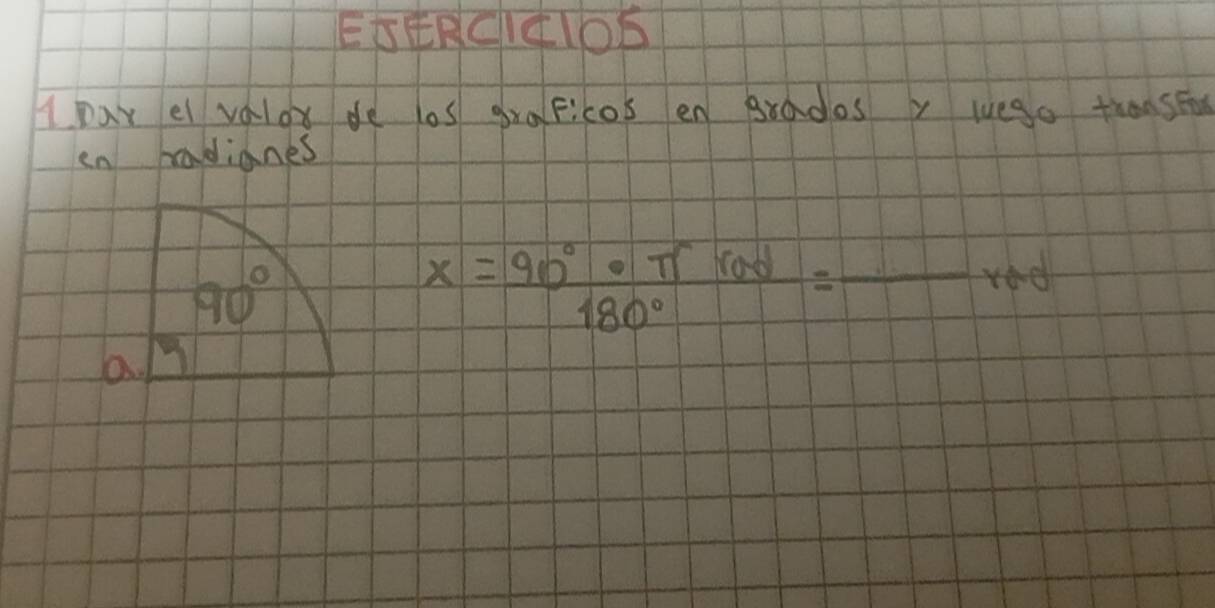 EJERCICIOS
1. Dar el valor de los graficos en grados y luego
en radianes
90°
x = 90° • π rad = rad
180°
a.